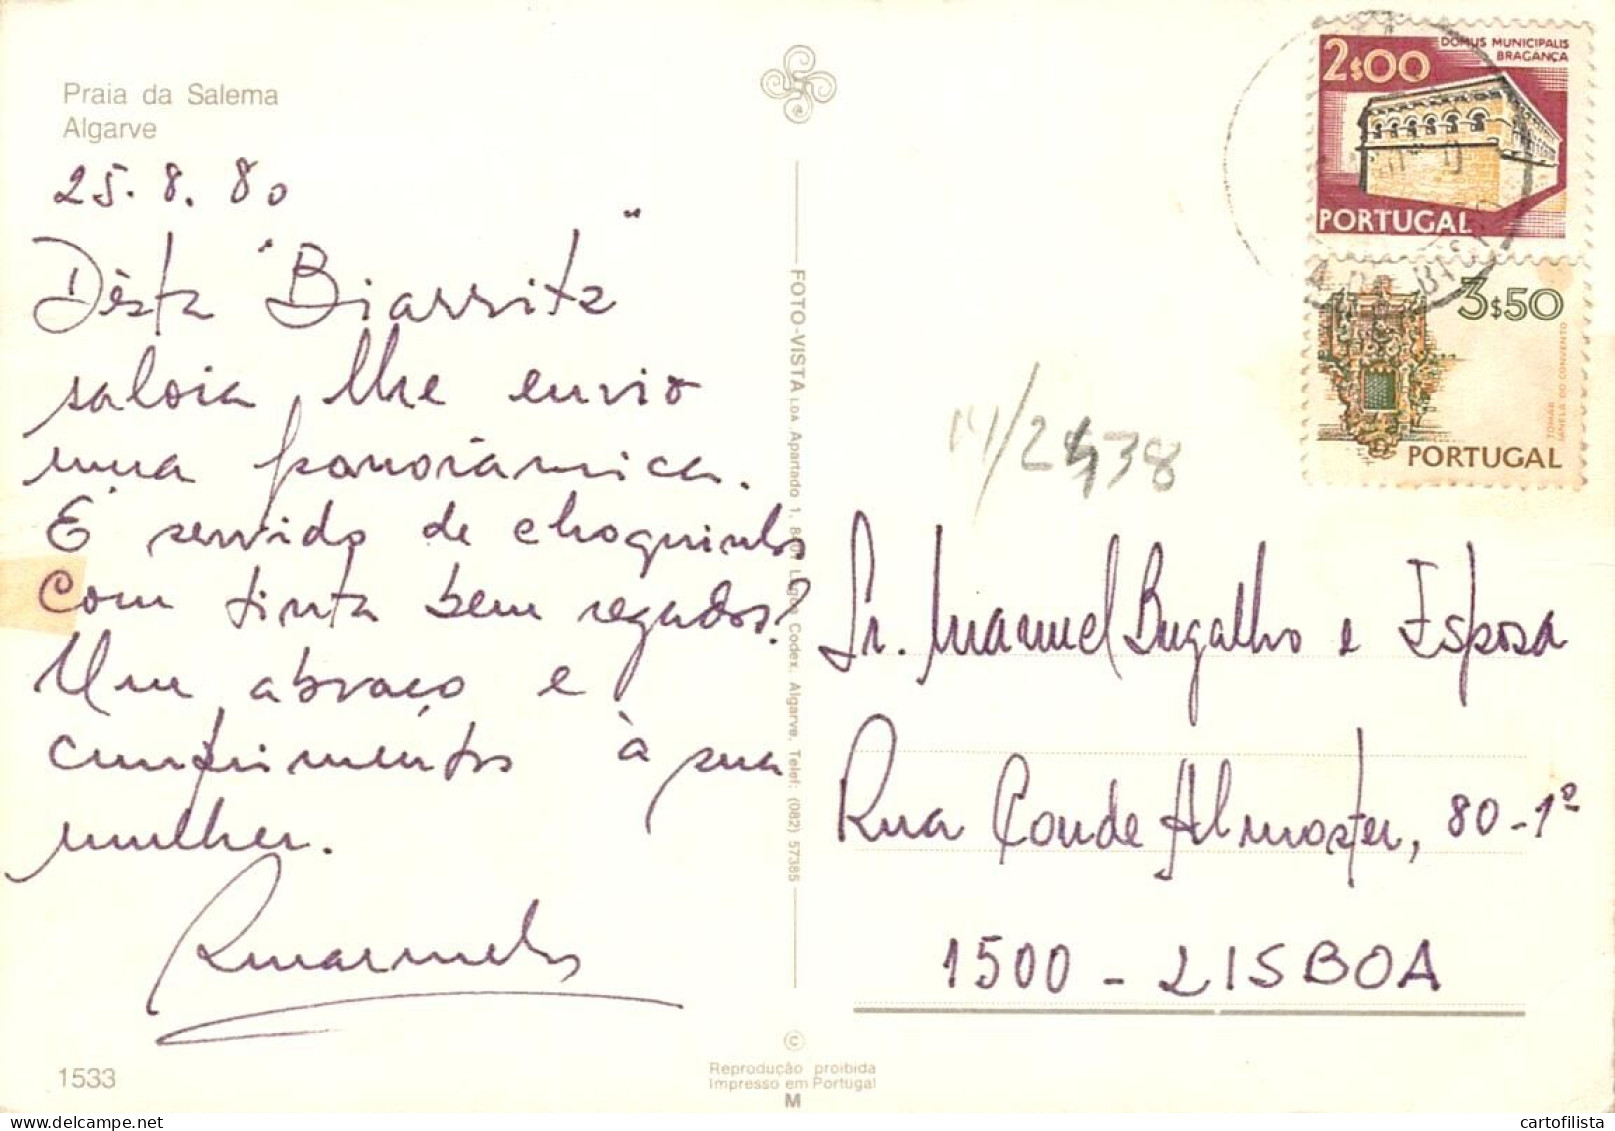 Praia da Salema
Algarve
25.8.80
Désta "Biarritz"
saloia, lhe envio
uma panorâmica.
É servido de choquinhos
com tinta bem regados?
Um abraço e
cumprimentos à sua
mulher.
1533
FOTO-VISTA LDA Apartado 1, 8601 Lagos Codex, Algarve, Telef: (082) 57385
©
Reprodução proibida
Impresso em Portugal
M
DOMUS MUNICIPALIS
BRAGANÇA
2$00
PORTUGAL
3$50
TOMAR
JANELA DO CONVENTO
PORTUGAL
Sr. Manuel Bugalho e Esposa
Rua Conde Almoster, 80-1º
1500 - LISBOA
cartofilista